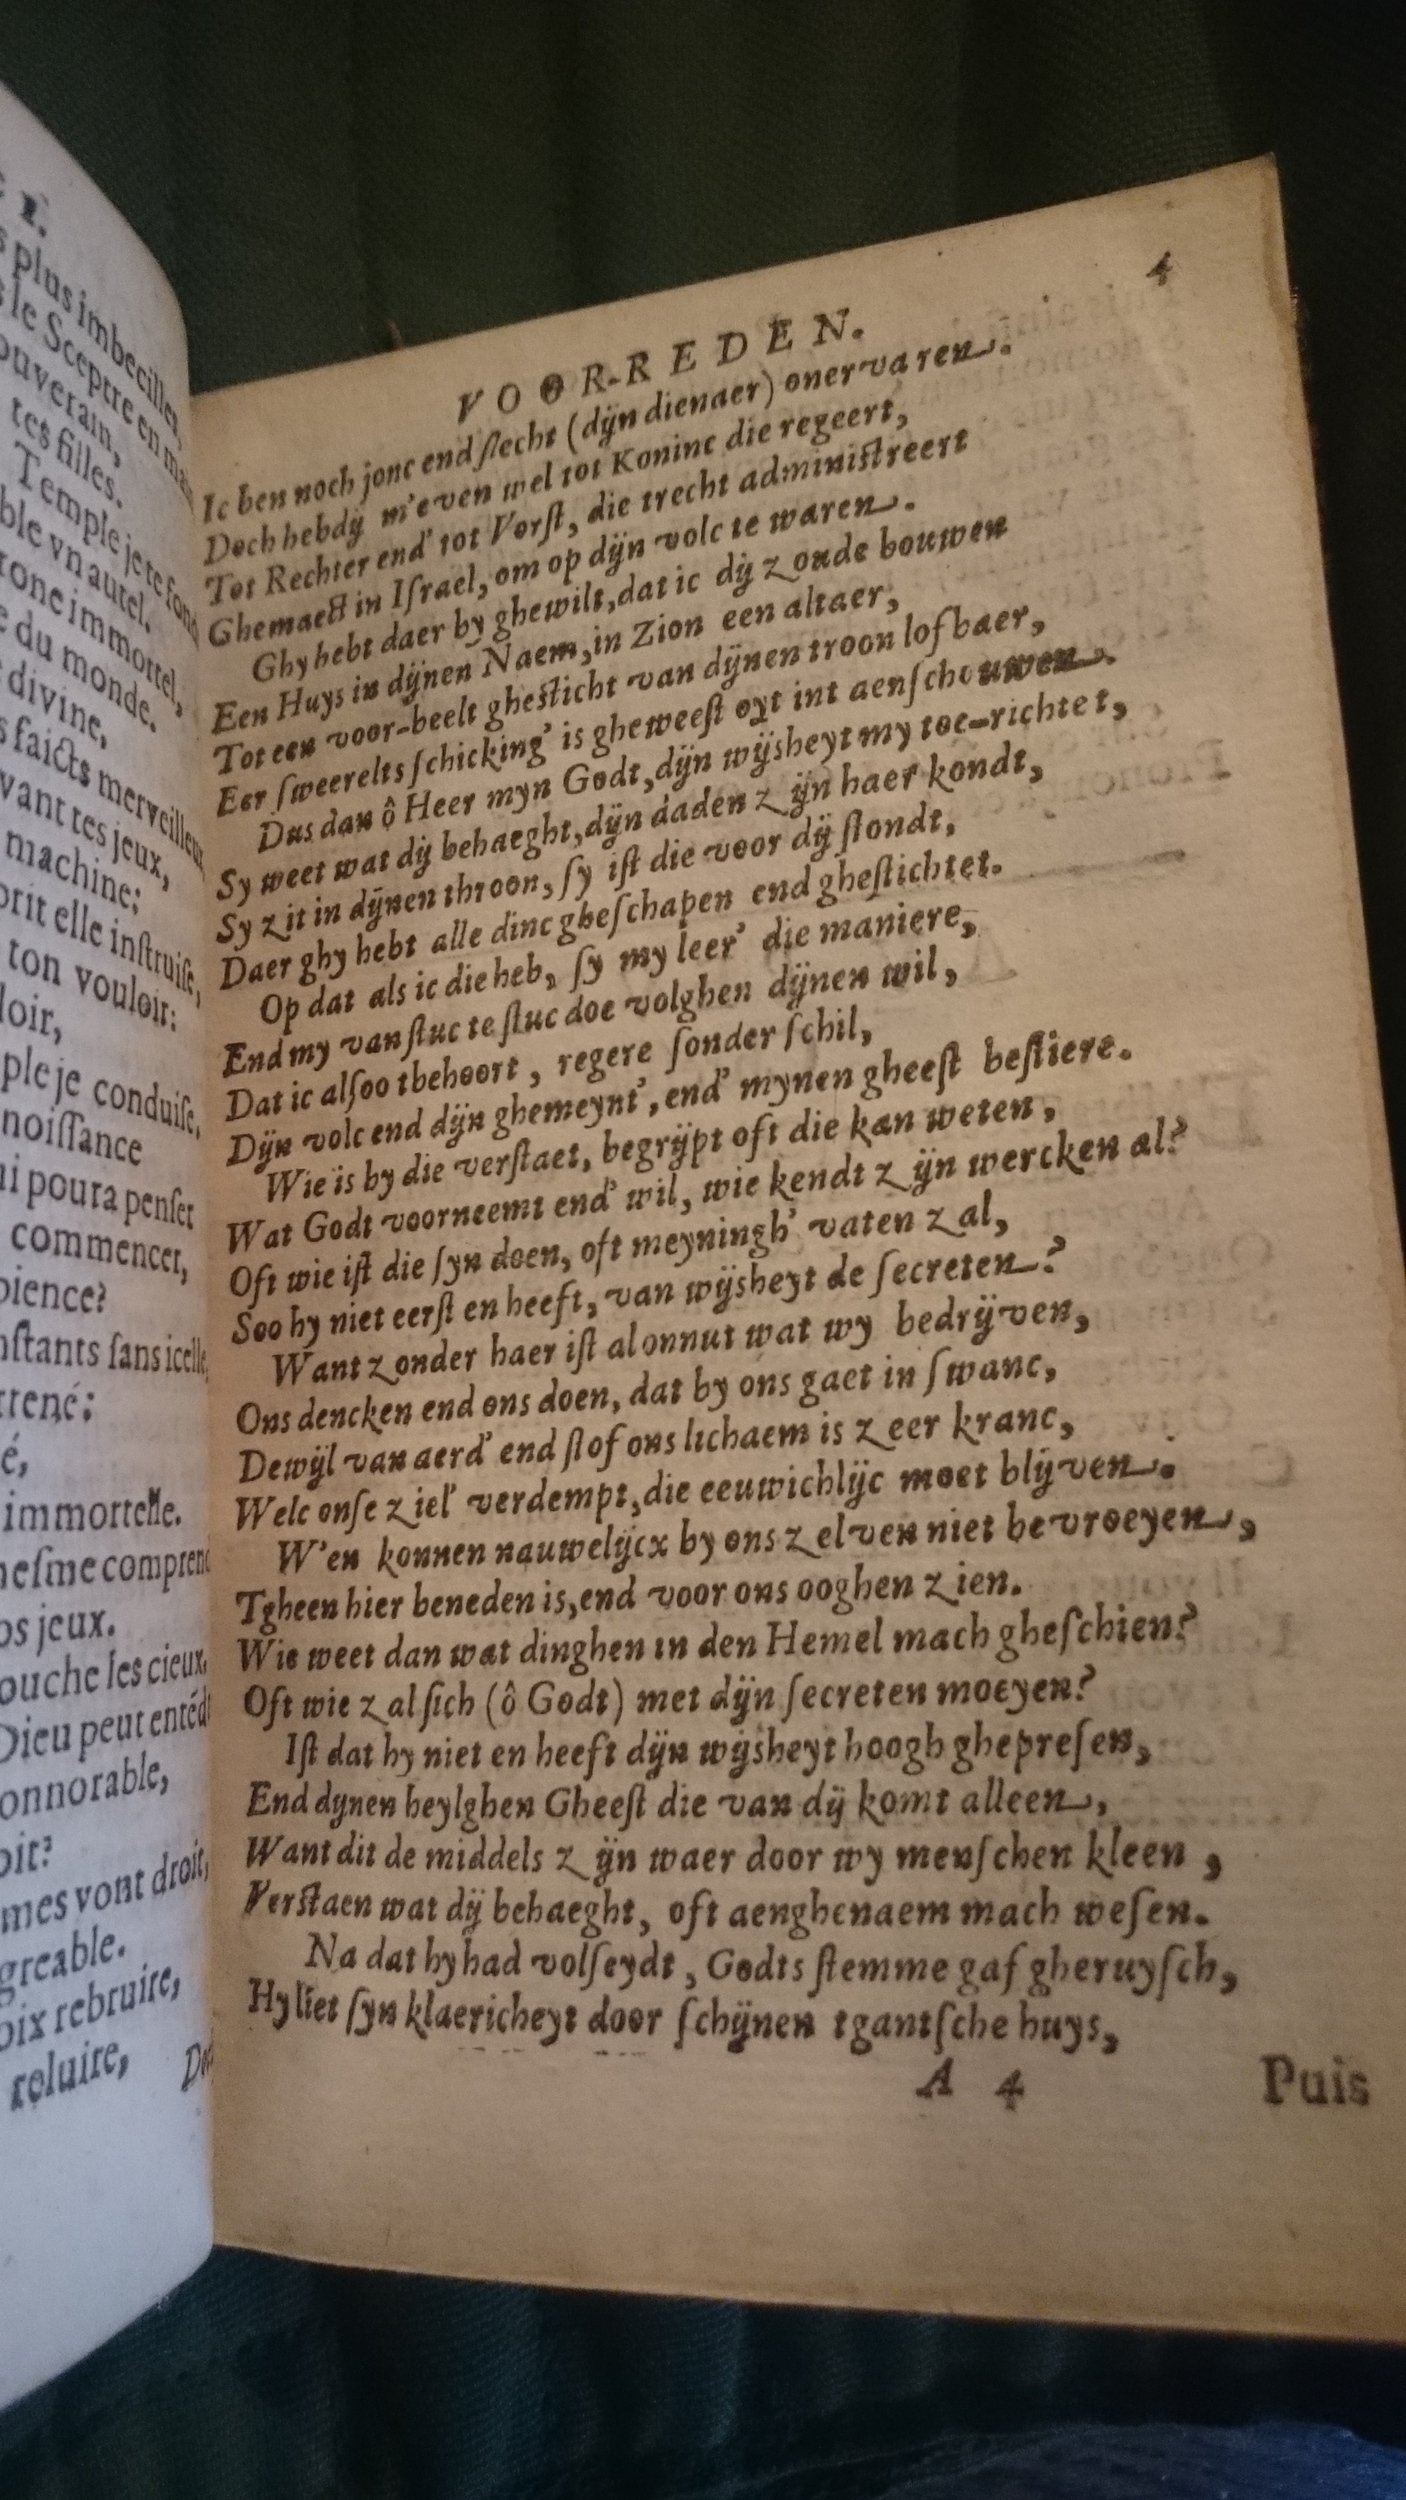 E I.
s plus imbecilles,
s le Sceptre en main
ouverain,
tes filles.
Temple je te fond
ble vn autel.
rone immortel,
e du monde.
divine,
s faicts merveilleux
vant tes jeux,
machine:
prit elle inſtruiſe,
ton vouloir:
loir,
ple je conduiſe.
noiſſance
ui poura penſer
commencer,
pience?
nſtants ſans icelle
rrené:
é,
immortelle.
neſme comprend
os jeux.
ouche les cieux,
Dieu peut entéd
onnorable,
oit?
mes vont droit,
greable.
oix rebruire,
reluire,
Do
4
VOOR-REDEN.
Ic ben noch jonc end ſlecht (dijn dienaer) onervaren.
Doch hebdij m'even wel tot Koninc die regeert,
Tot Rechter end' tot Vorſt, die trecht adminiſtreert
Ghemaect in Iſrael, om op dijn volc te waren.
Ghy hebt daer by ghewilt, dat ic dij zoude bouwen
Een Huys in dijnen Naem, in Zion een altaer,
Tot een voor-beelt gheſticht van dijnen troon lofbaer,
Eer ſweerelts ſchicking' is gheweeſt oyt int aenſchouwen.
Dus dan ô Heer myn Godt, dijn wijsheyt my toe-richtet,
Sy weet wat dij behaeght, dijn daden zijn haer kondt,
Sy zit in dijnen throon, ſy iſt die voor dij ſtondt,
Daer ghy hebt alle dinc gheſchapen end gheſtichtet.
Op dat als ic die heb, ſy my leer' die maniere,
End my van ſtuc te ſtuc doe volghen dijnen wil,
Dat ic alſoo tbehoort, regere ſonder ſchil,
Dijn volc end dijn ghemeynt', end' mynen gheeſt beſtiere.
Wie is by die verſtaet, begrijpt oft die kan weten,
Wat Godt voorneemt end' wil, wie kendt zijn wercken al?
Oft wie iſt die ſyn doen, oft meyningh' vaten zal,
Soo hy niet eerſt en heeft, van wijsheyt de ſecreten?
Want zonder haer iſt al onnut wat wy bedrijven,
Ons dencken end ons doen, dat by ons gaet in ſwanc,
Dewijl van aerd' end ſtof ons lichaem is zeer kranc,
Welc onſe ziel' verdempt, die eeuwichlijc moet blijven.
W'en konnen nauwelijcx by ons zelven niet bevroeyen,
Tgheen hier beneden is, end voor ons ooghen zien.
Wie weet dan wat dinghen in den Hemel mach gheſchien?
Oft wie zal ſich (ô Godt) met dijn ſecreten moeyen?
Iſt dat hy niet en heeft dijn wijsheyt hoogh ghepreſen,
End dynen heylghen Gheeſt die van dij komt alleen,
Want dit de middels zijn waer door wy menſchen kleen,
Verſtaen wat dij behaeght, oft aenghenaem mach weſen.
Na dat hy had volſeydt, Godts ſtemme gaf gheruyſch,
Hy liet ſyn klaericheyt door ſchijnen tgantſche huys,
A 4
Puis